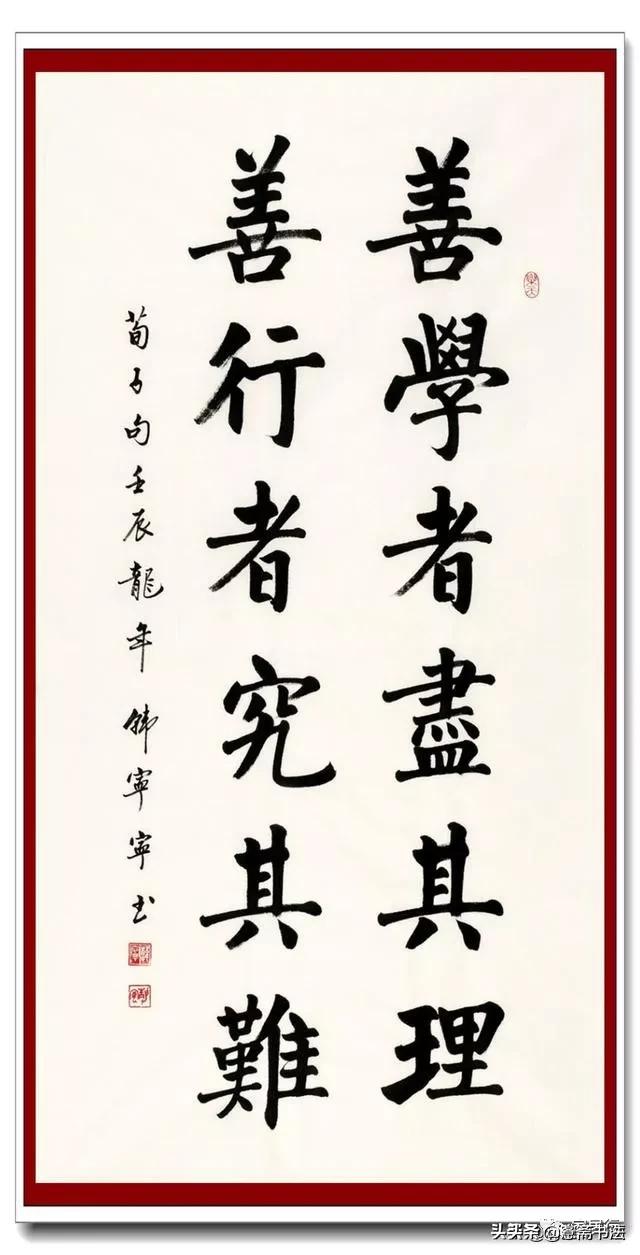 善學者盡其理
善行者究其難
荀子句壬辰龍年韩寧寧书
头条@